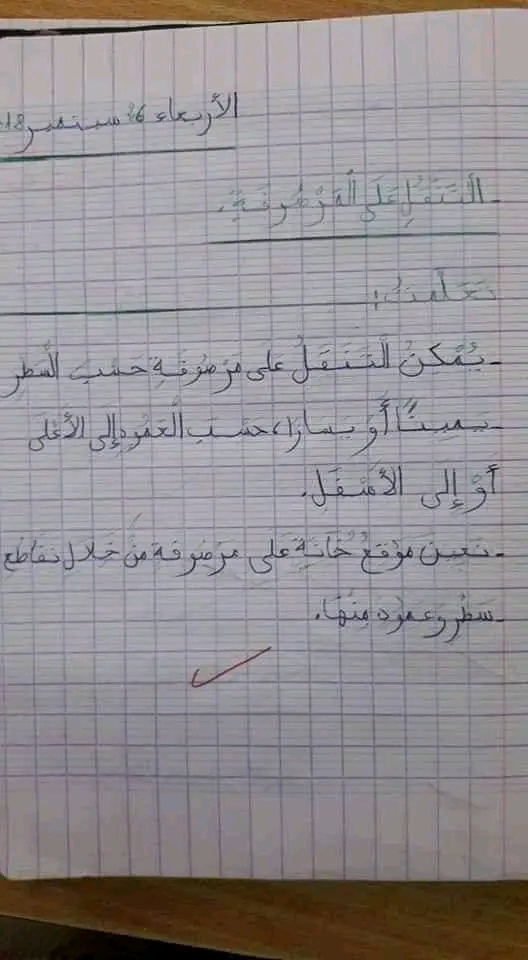 الأربعاء 26 سبتمبر 2018
- اَلتَّنَقُّلِ عَلَى الْمَرْصُوفَةِ.
تَعَلَّمْتُ:
- يُمْكِنُ اَلتَنَقَلُ عَلى مَرْصُوفَةِ حَسْبَ السَّطرِ
يَمِينًا أَوْ يَسارًا، حَسْبَ الْعَمُودِ إلى الأَعْلَى
أَوْ إِلى الأَسْفَلِ.
- نَعِينَ مَوْقِعُ خَانَةِ عَلى مَرْصُوفَة مِنْ خَلال تقاطع
- سَطْر وَعمود مِنْهَا.